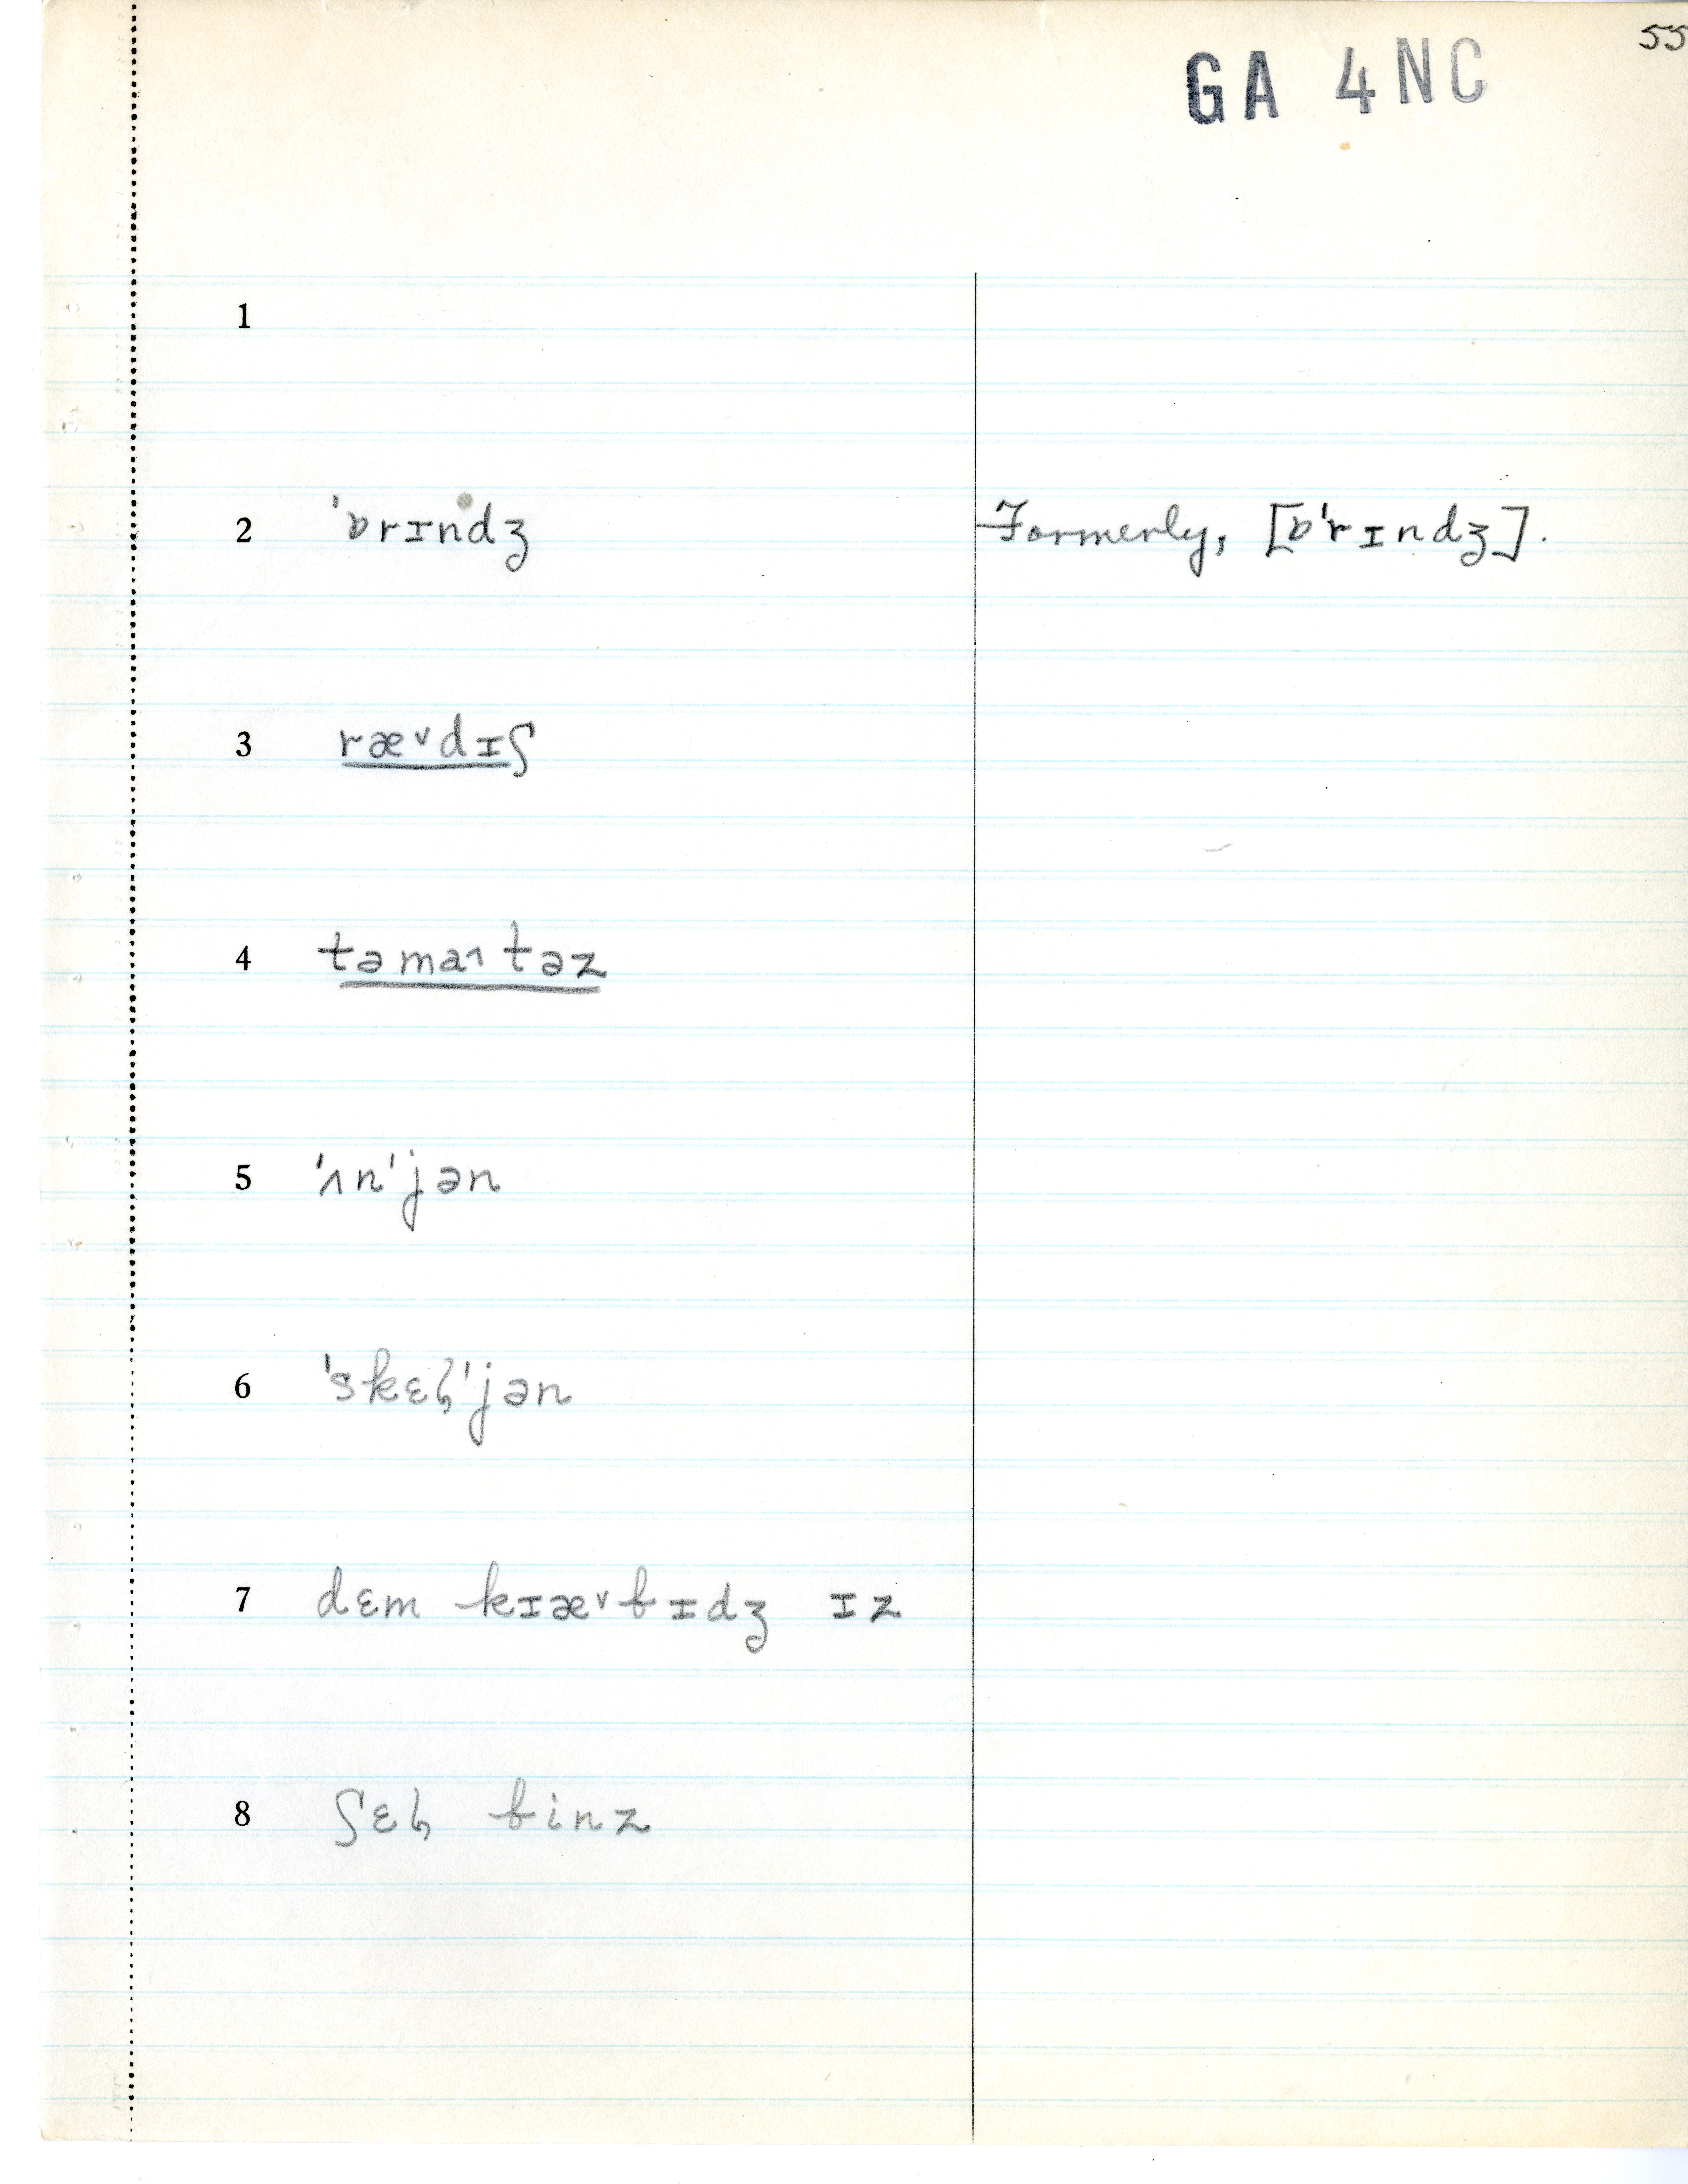 55
GA 4 NC
1
2 ˈɒrɪndʒ Formerly, [ɒˈrɪndʒ].
3 ræ˅dɪʃ
4 təma˄təz
5 ˈʌnˈjən
6 ˈskɛɫ̡ˈjən
7 dɛm kɪæ˅bɪdʒ ɪz
8 ʃɛɫ̡ binz